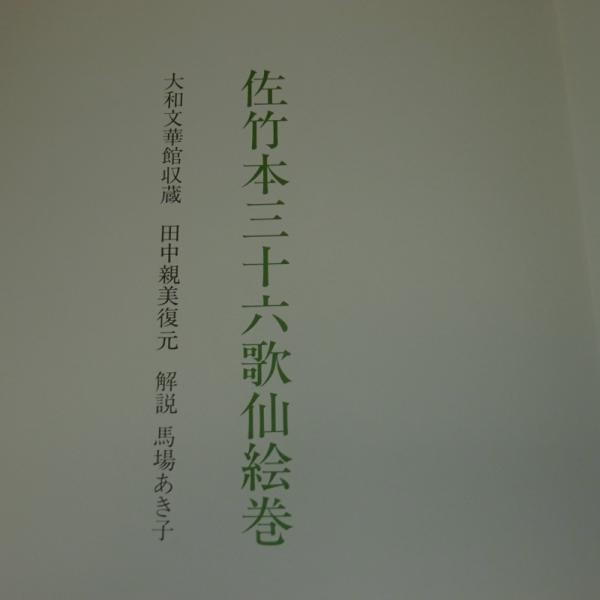 佐竹本三十六歌仙絵巻
大和文華館収蔵　田中親美復元　解説　馬場あき子